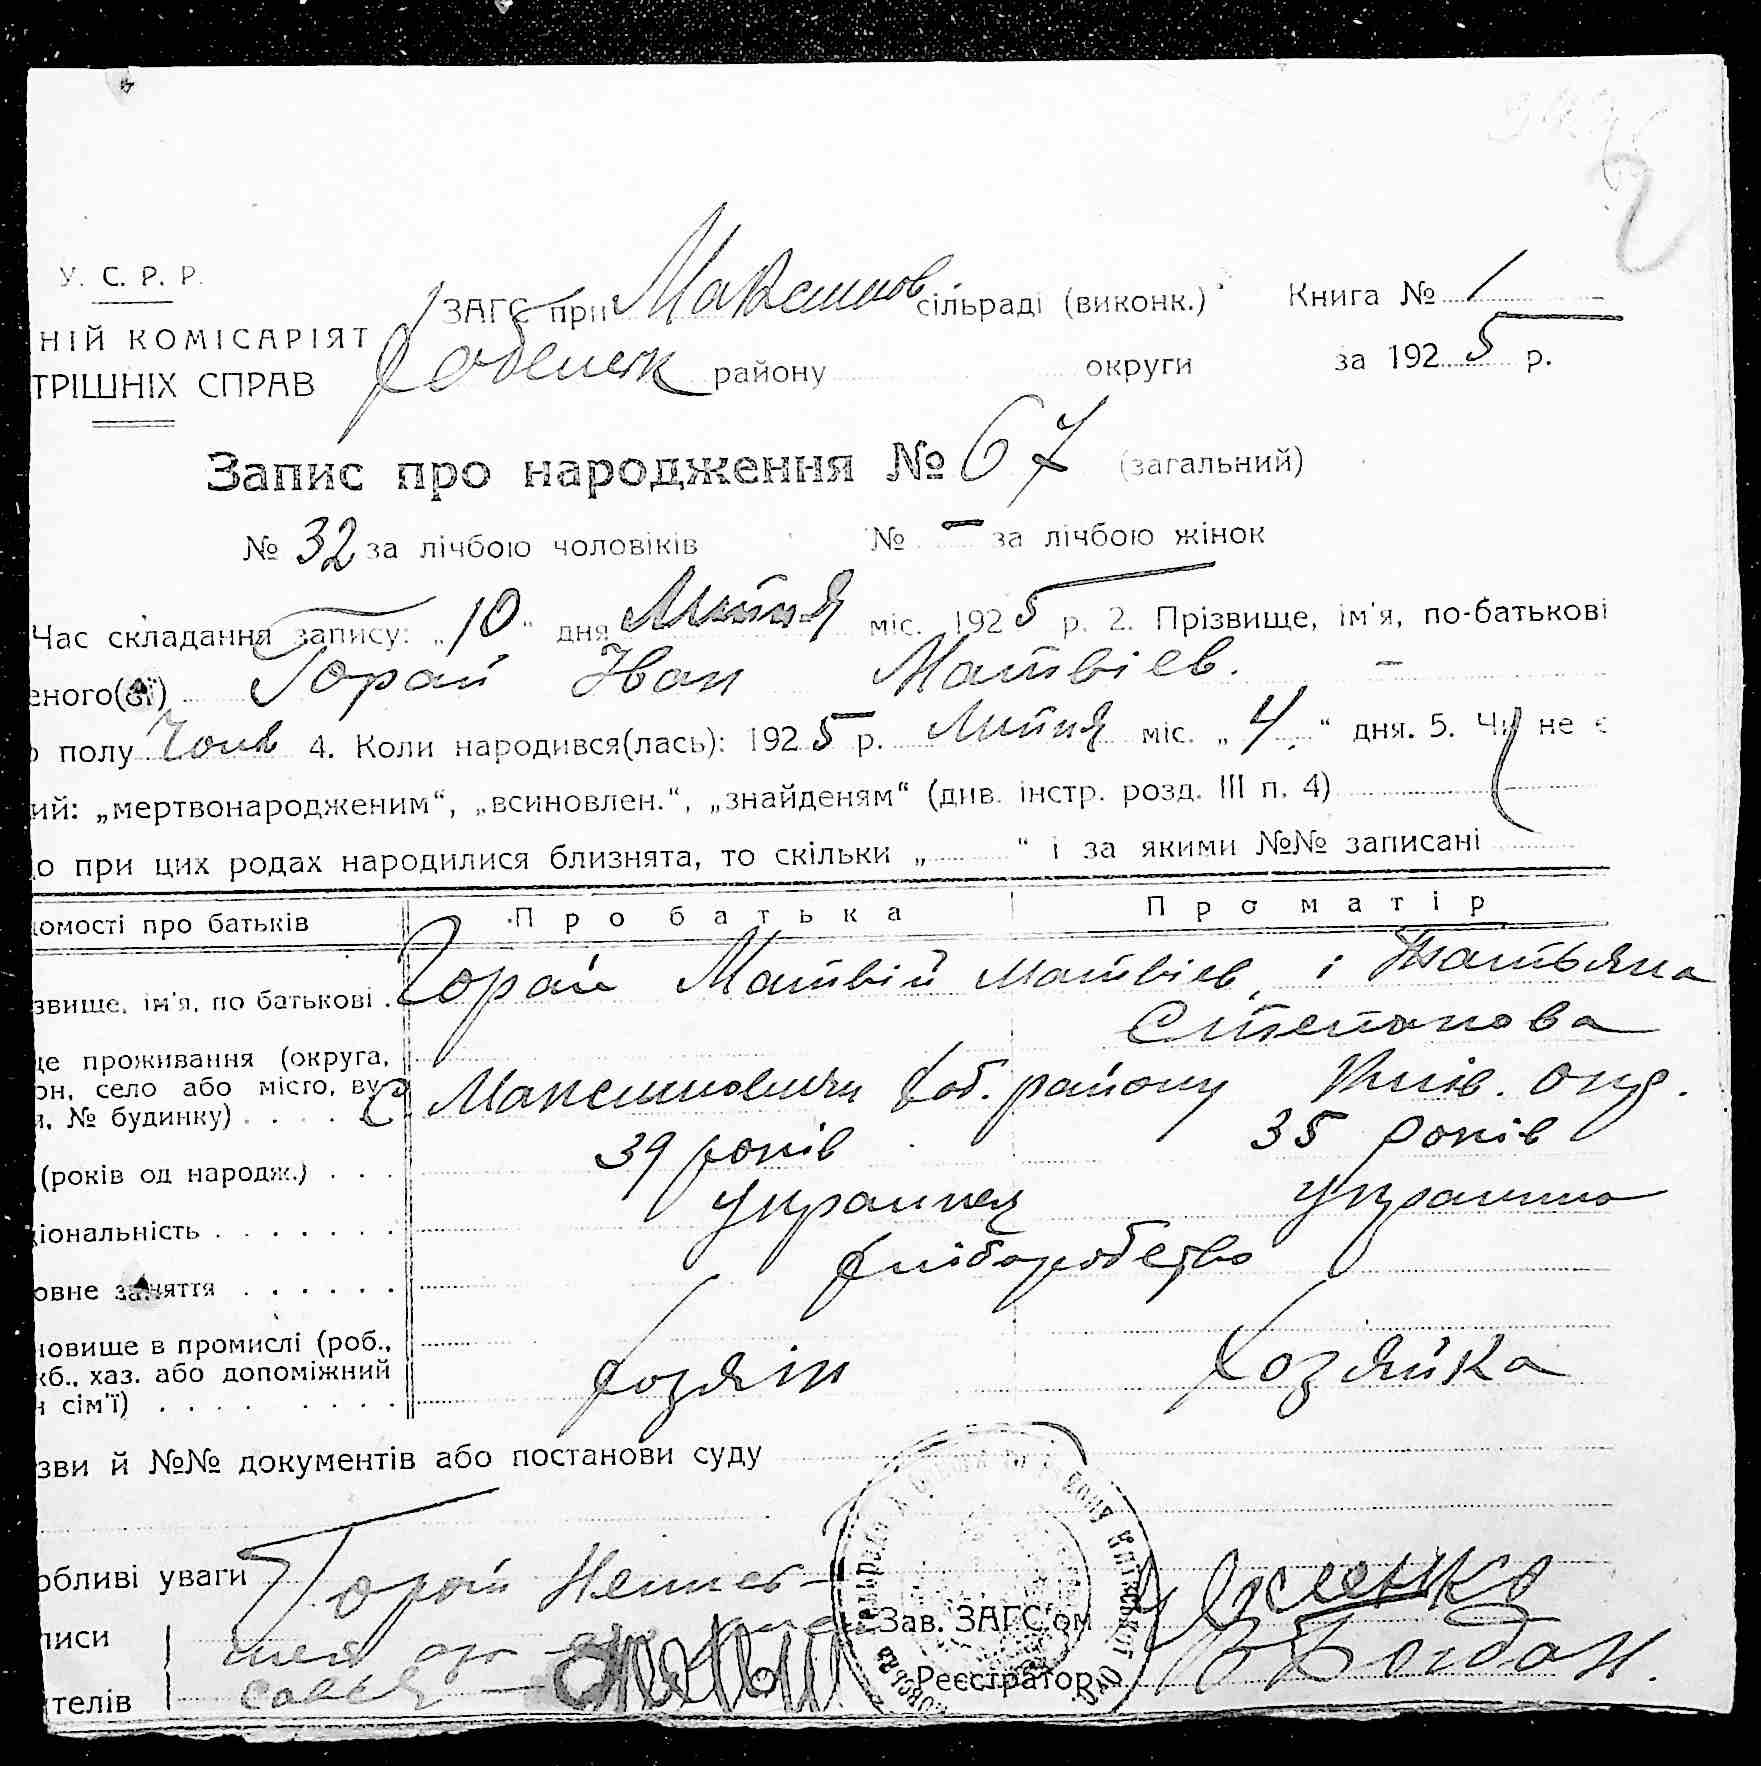 У. С. Р. Р.
НІЙ КОМІСАРІЯТ
ТРІШНІХ СПРАВ
ЗАГС при Максимов сільраді (виконк.) Книга № 1
району округи за 1925 р.
Запис про народження № 67 (загальний)
№ 32 за лічбою чоловіків № – за лічбою жінок
Час складання запису: „10“ дня Липня міс. 1925 р. 2. Прізвище, ім'я, по-батькові
еного(ої) Горай Іван Матвіев. –
о полу Чолов 4. Коли народився(лась): 1925 р. Липня міс. „4“ дня. 5. Чи не є
ий: „мертвонародженим“, „всиновлен.“, „знайденям“ (див. інстр. розд. III п. 4)
о при цих родах народилися близнята, то скільки „ “ і за якими №№ записані
омості про батьків Про батька Про матір
звище, ім'я, по батькові . Горай Матвій Матвієв, і Татьяна
Степанова
це проживання (округа,
он, село або місто, ву
я, № будинку) . . . . С. Максимовичи Хаб. району Київ. окр.
(років од народж.) . . . 39 років 35 років
ціональність . . . . . . . Украинец Украинка
овне заняття . . . . . . Хліборобство
новище в промислі (роб.,
жб., хаз. або допоміжний
н сім'ї) . . . . . . . . Хозяін Хозяйка
зви й №№ документів або постанови суду
обливі уваги Горай
писи Зав. ЗАГС'ом
ителів Реєстратор В Богдан.